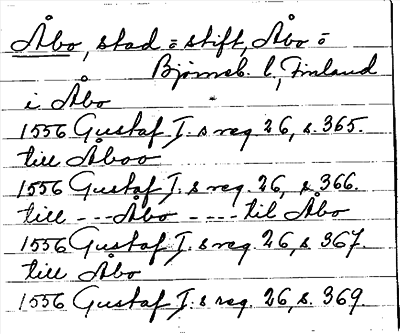 Åbo, stad = stift, Åbo =
Björneb. l., Finland
i Åbo
1556 Gustaf I. s reg. 26, s. 365.
till Åboo
1556 Gustaf I. s reg. 26, s. 366.
till - - - Åbo - - - - til Åbo
1556 Gustaf I. s reg. 26, s. 367.
till Åbo
1556 Gustaf I. s reg. 26, s. 369.